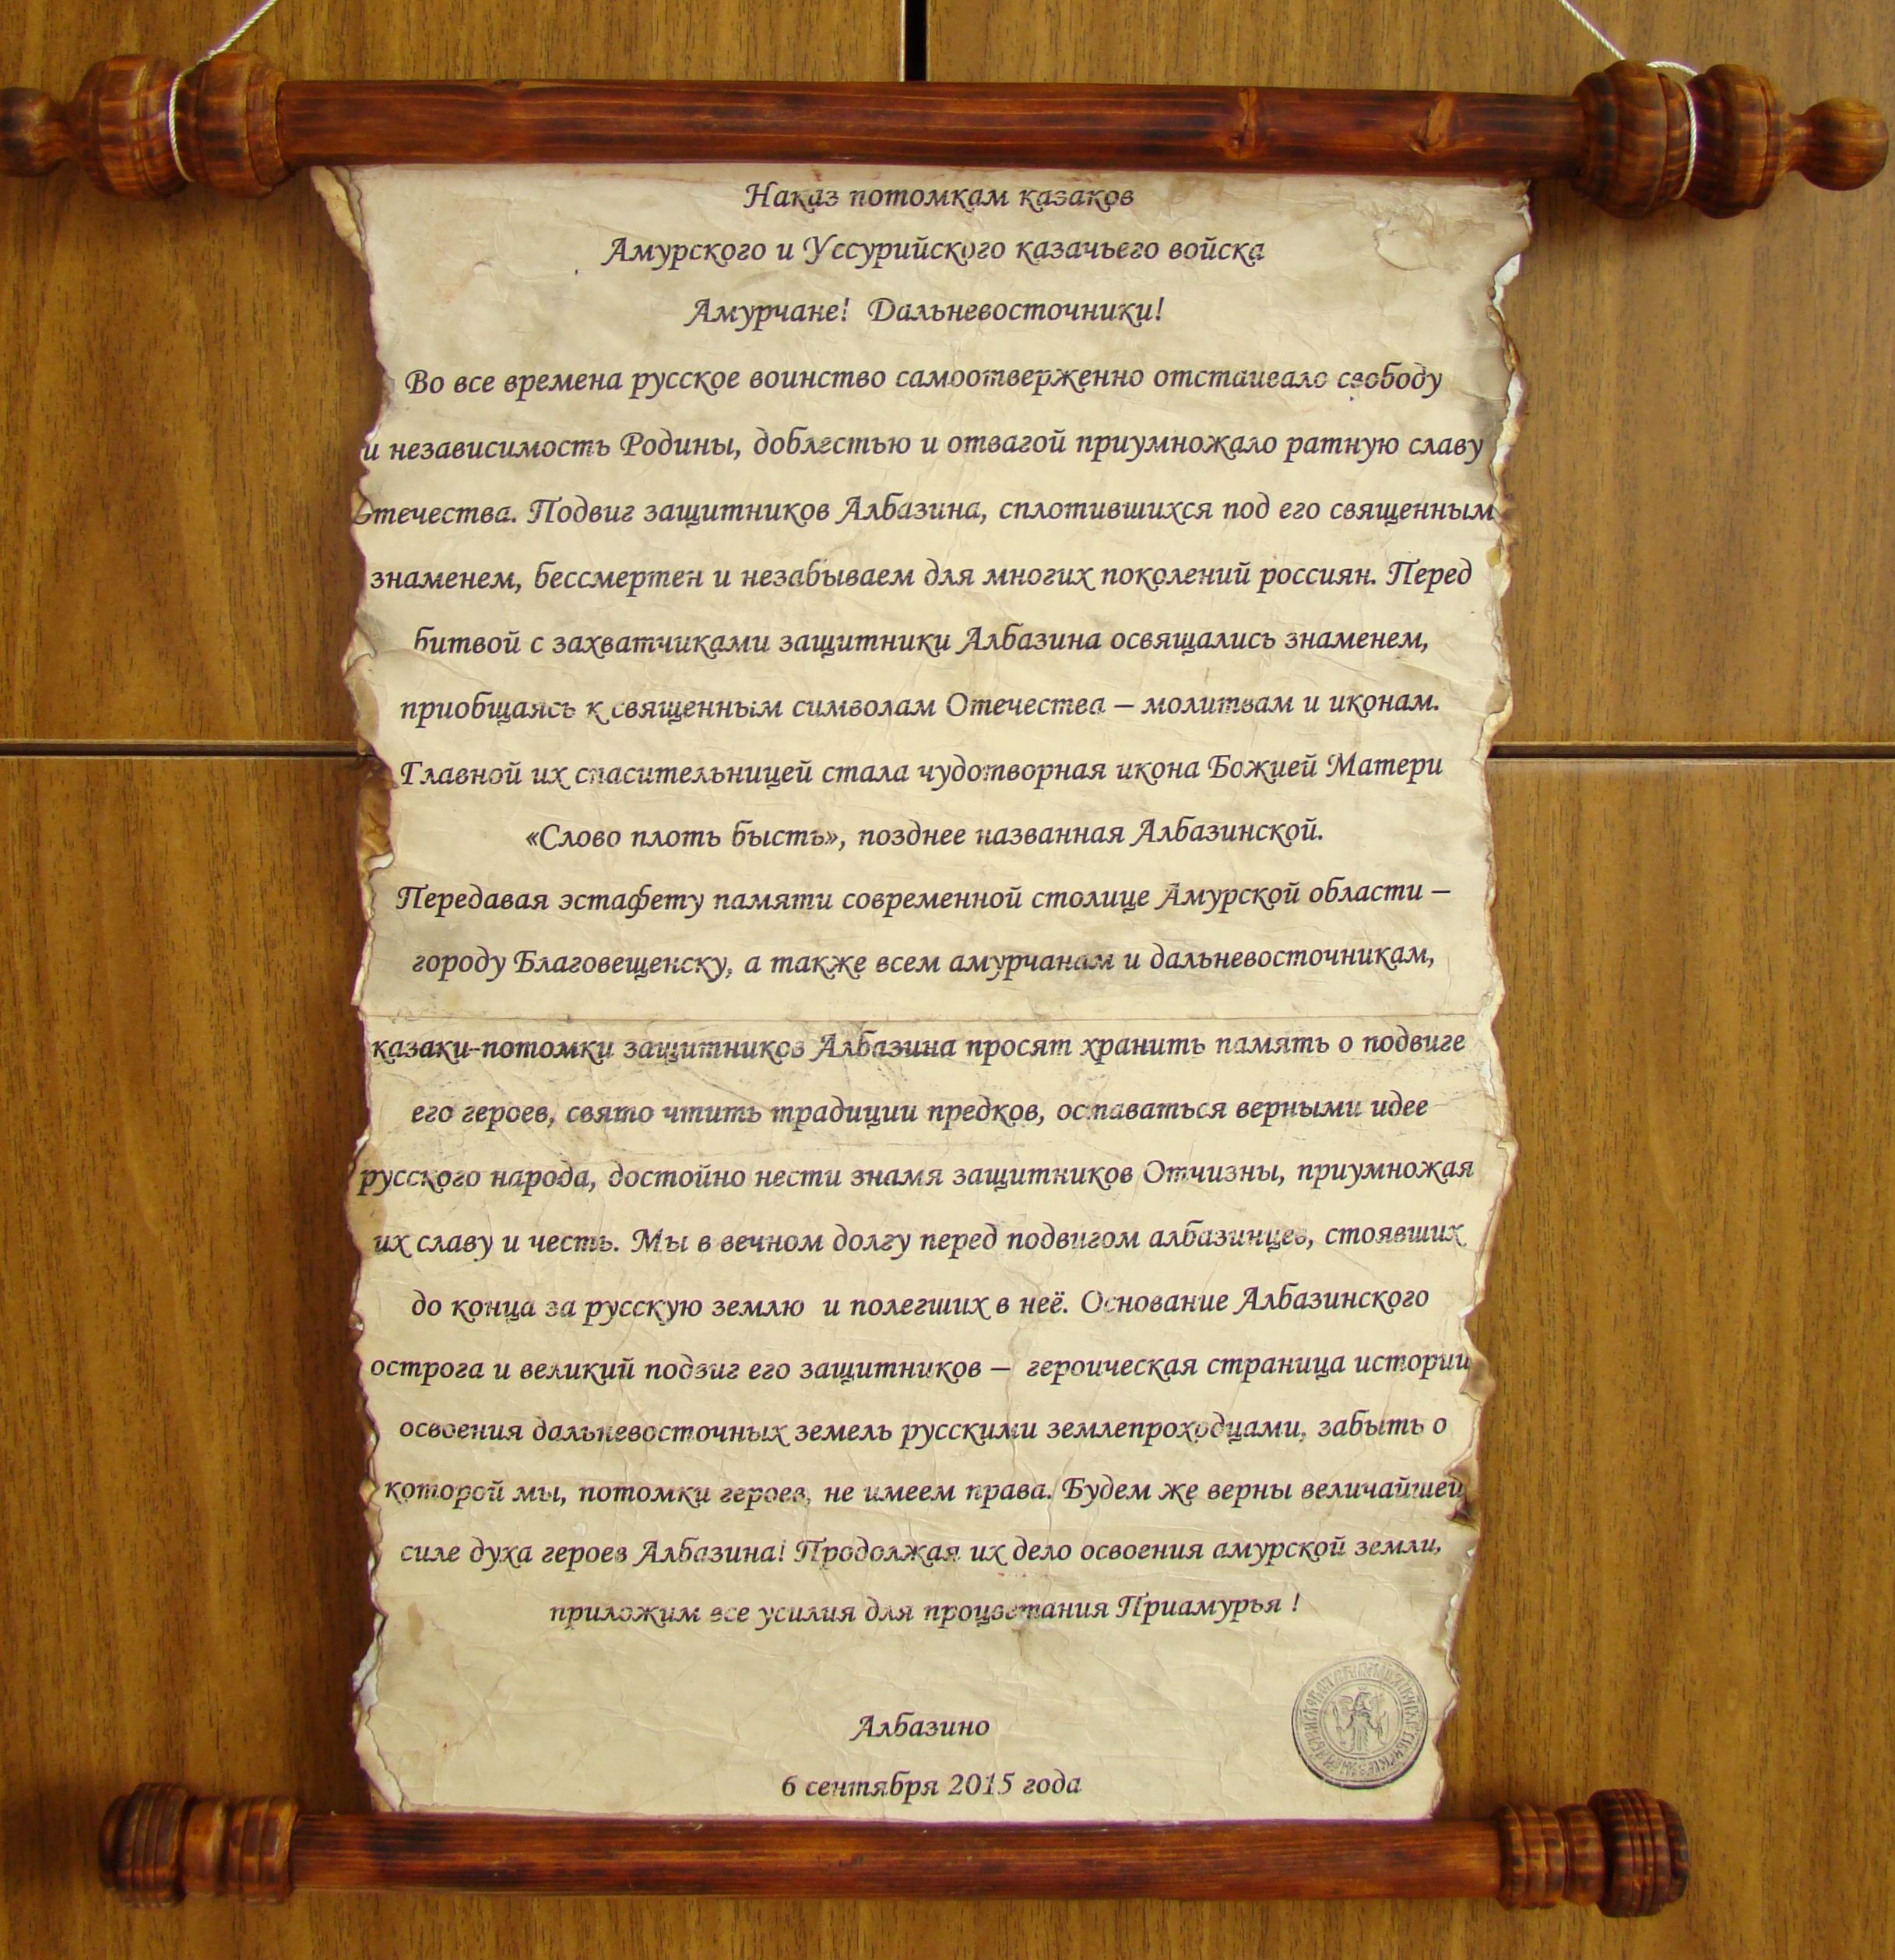 Наказ потомкам казаков
Амурского и Уссурийского казачьего войска
Амурчане! Дальневосточники!
Во все времена русское воинство самоотверженно отстаивало свободу
и независимость Родины, доблестью и отвагой приумножало ратную славу
Отечества. Подвиг защитников Албазина, сплотившихся под его священным
знаменем, бессмертен и незабываем для многих поколений россиян. Перед
битвой с захватчиками защитники Албазина освящались знаменем,
приобщаясь к священным символам Отечества – молитвам и иконам.
Главной их спасительницей стала чудотворная икона Божией Матери
«Слово плоть бысть», позднее названная Албазинской.
Передавая эстафету памяти современной столице Амурской области –
городу Благовещенску, а также всем амурчанам и дальневосточникам,
казаки-потомки защитников Албазина просят хранить память о подвиге
его героев, свято чтить традиции предков, оставаться верными идее
русского народа, достойно нести знамя защитников Отчизны, приумножая
их славу и честь. Мы в вечном долгу перед подвигом албазинцев, стоявших
до конца за русскую землю и полегших в неё. Основание Албазинского
острога и великий подвиг его защитников – героическая страница истории
освоения дальневосточных земель русскими землепроходцами, забыть о
которой мы, потомки героев, не имеем права. Будем же верны величайшей
силе духа героев Албазина! Продолжая их дело освоения амурской земли,
приложим все усилия для процветания Приамурья !
Албазино
6 сентября 2015 года